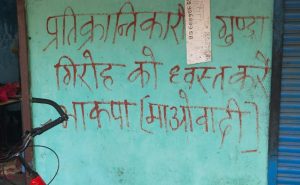 प्रतिक्रान्तिकारी गुण्डा
गिरोह को ध्वस्त करें
भाकपा (माओवादी)